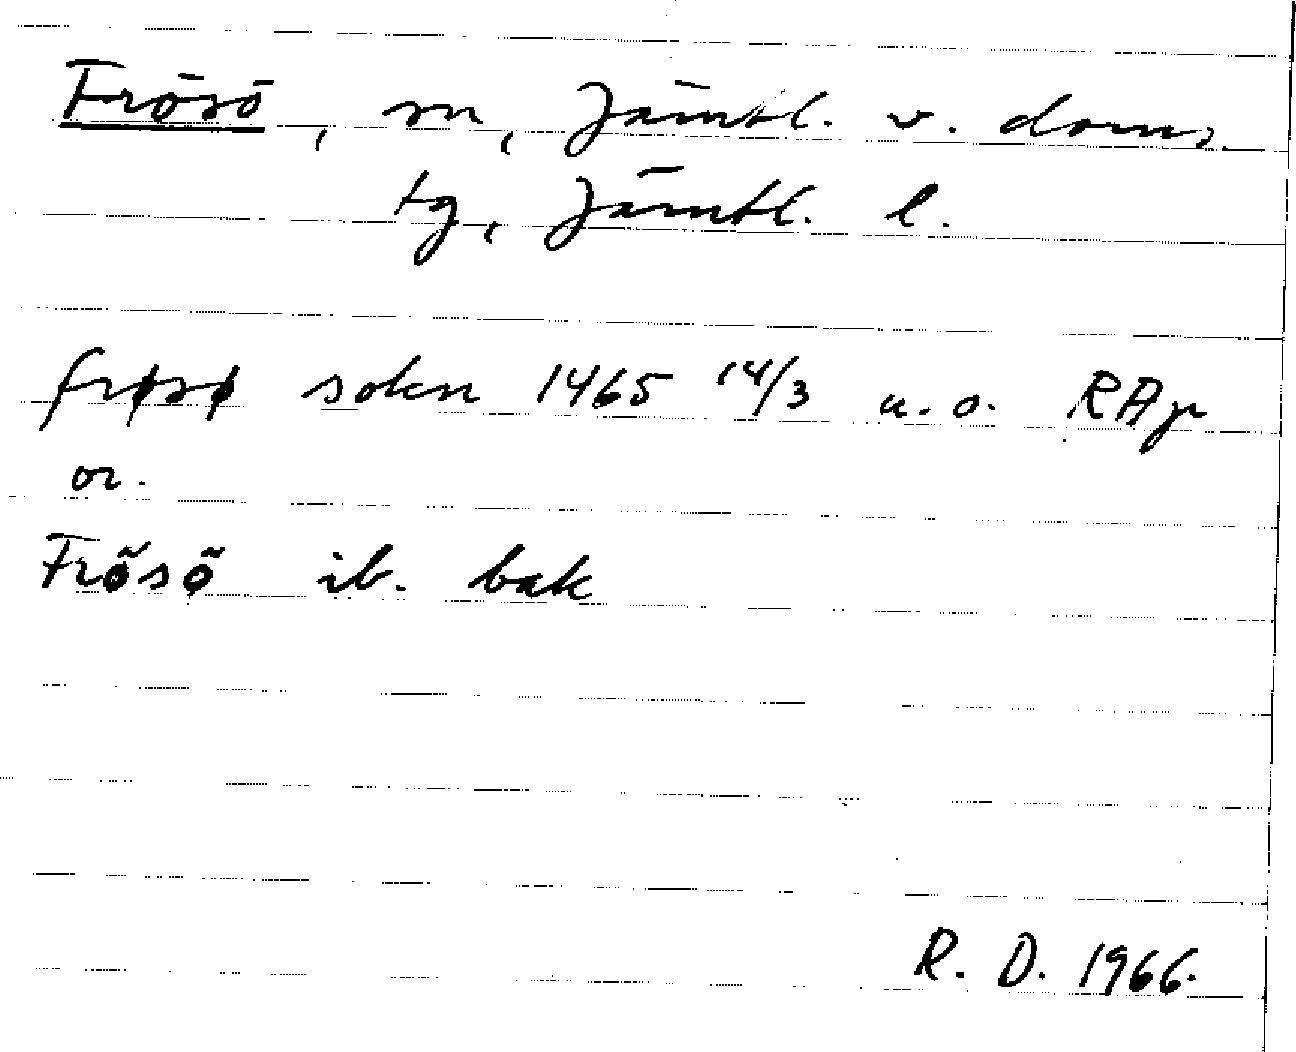 Frösö, sn, Jämtl. v. doms.
tg, Jämtl. l.
frøsø sokn 1465 14/3 u.o. RAp
or.
Frö̋sö̋ ib. bak
R. D. 1966.